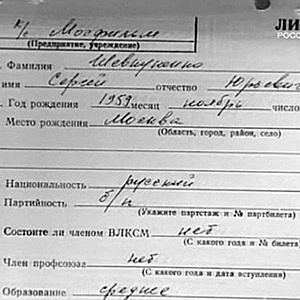 к/с Мосфильм
ЛИ
РОСС
(Предприятие, учреждение)
Фамилия Шевкуненко
имя Сергей отчество Юрьевич
Год рождения 1959 месяц ноябрь число
Место рождения Москва
(Область, город, район, село)
Национальность русский
Партийность б/п
(Укажите партстаж и № партбилета)
Состоите ли членом ВЛКСМ нет
(С какого года и № билета
Член профсоюза нет
(С какого года и дата вступления)
Образование среднее